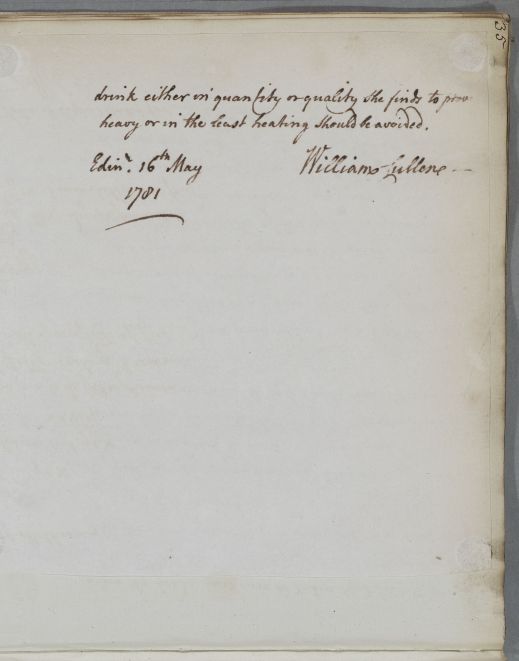 35
drink either in quantity or quality she finds to prov
heavy or in the least heating should be avoided.
Edinr. 16th May Williams Cullone
1781